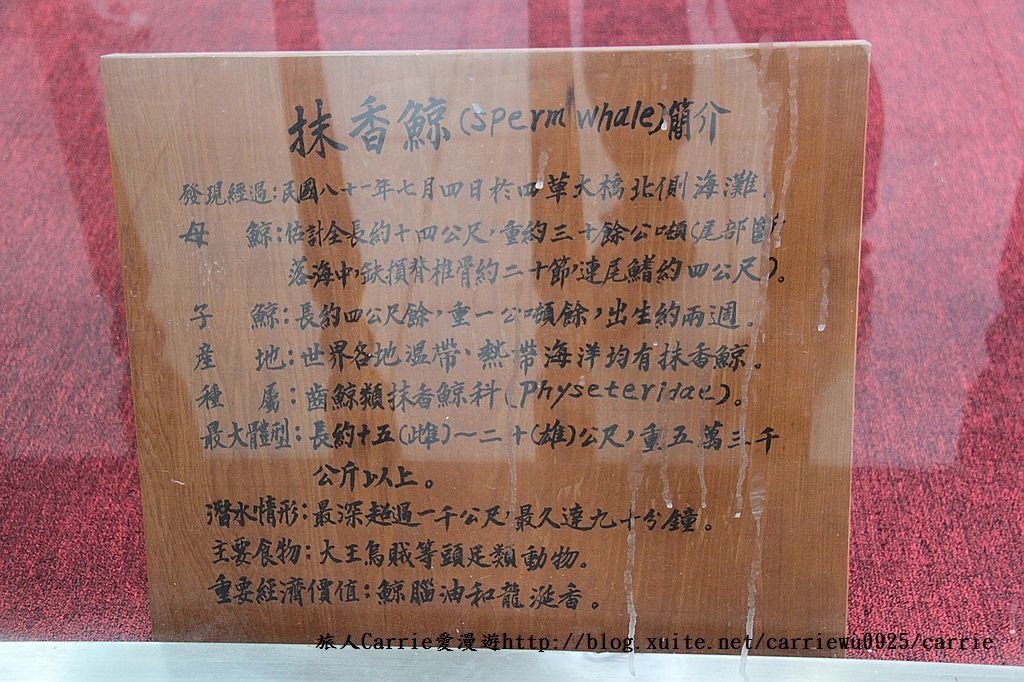 抹香鯨(sperm whale)簡介
發現經過:民國八十一年七月四日於四草大橋北側海灘.
母 鯨:估計全長約十四公尺,重約三十餘公噸(尾部斷
落海中,缺損脊椎骨約二十節,連尾鰭約四公尺)。
子 鯨:長約四公尺餘,重一公噸餘,出生約兩週。
產 地:世界各地溫帶、熱帶海洋均有抹香鯨。
種 屬:齒鯨類抹香鯨科(Physeteridae)。
最大體型:長約十五(雌)~二十(雄)公尺,重五萬三千
公斤以上。
潛水情形:最深超過一千公尺,最久達九十分鐘。
主要食物:大王烏賊等頭足類動物。
重要經濟價值:鯨腦油和龍涎香。
旅人Carrie愛漫遊http://blog.xuite.net/carriewu0925/carrie